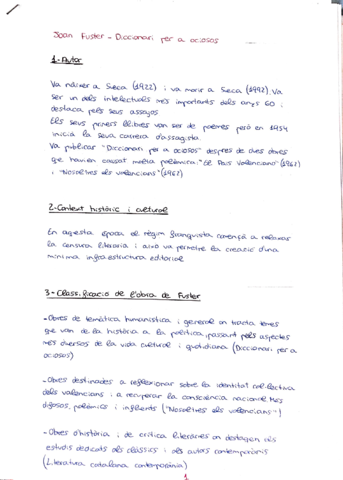 Joan Fuster - Diccionari per a ociosos
1- Autor
Va nàixer a Sueca (1922) i va morir a Sueca (1992). Va
ser un dels intelectuals més importants dels anys 60 i
destaca pels seus assajos
Els seus primers llibres van ser de poemes però en 1954
inicià la seva carrera d'assagista.
Va publicar "Diccionari per a ociosos" despres de dues obres
que havien causat molta polèmica: "El País Valenciano" (1962)
i "Nosaltres els valencians" (1962)
2-Context històric i cultural
En aquesta època el règim franquista començà a relaxar
la censura literaria i això va permetre la creació d'una
mínima infraestructura editorial
3- Classificació de l'obra de Fuster
-Obres de temàtica humanística i general on tracta temes
que van de la història a la política, passant pels aspectes
més diversos de la vida cultural i quotidiana (Diccionari per a
ociosos)
-Obres destinades a reflexionar sobre la identitat col·lectiva
dels valencians i a recuperar la consciència nacional. Més
polèmics i influents ("Nosaltres els valencians")
-Obres d'història i de crítica literàries on destaquen els
estudis dedicats als clàssics i als autors contemporanis
(Literatura catalana contemporània)
1